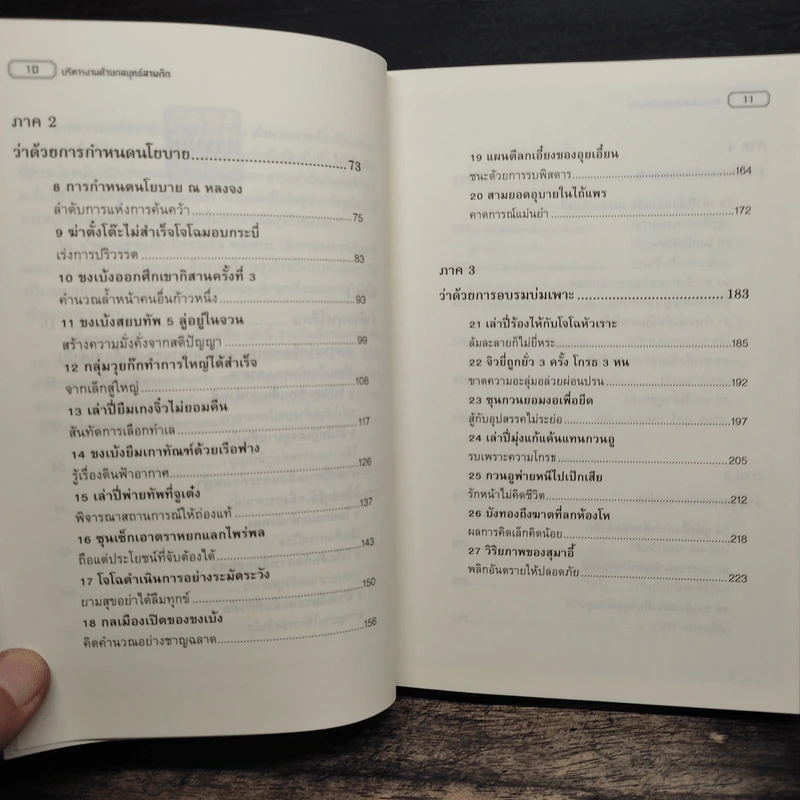 10 บริหารงานด้วยกลยุทธ์สามก๊ก
ภาค 2
ว่าด้วยการกำหนดนโยบาย..............................73
8 การกำหนดนโยบาย ณ หลงจง
ลำดับการแห่งการค้นคว้า..............................75
9 ฆ่าตั๋งโต๊ะไม่สำเร็จโจโฉมอบกระบี่
เร่งการปริวรรต..............................83
10 ขงเบ้งออกศึกเขากิสานครั้งที่ 3
คำนวณล้ำหน้าคนอื่นก้าวหนึ่ง..............................93
11 ขงเบ้งสยบทัพ 5 ลู่อยู่ในจวน
สร้างความมั่งคั่งจากสติปัญญา..............................99
12 กลุ่มวุยก๊กทำการใหญ่ได้สำเร็จ
จากเล็กสู่ใหญ่..............................108
13 เล่าปี่ยืมเกงจิ๋วไม่ยอมคืน
สันทัดการเลือกทำเล..............................117
14 ขงเบ้งยืมเกาทัณฑ์ด้วยเรือฟาง
รู้เรื่องดินฟ้าอากาศ..............................126
15 เล่าปี่พ่ายทัพที่จูเต๋ง
พิจารณาสถานการณ์ให้ถ่องแท้..............................137
16 ซุนเซ็กเอาตราหยกแลกไพร่พล
ถือแต่ประโยชน์ที่จับต้องได้..............................143
17 โจโฉดำเนินการอย่างระมัดระวัง
ยามสุขอย่าได้ลืมทุกข์..............................150
18 กลเมืองเปิดของขงเบ้ง
คิดคำนวณอย่างชาญฉลาด..............................156
11
19 แผนตีลกเอี๋ยงของอุยเอี๋ยน
ชนะด้วยการรบพิสดาร..............................164
20 สามยอดอุบายในไถ้แพร
คาดการณ์แม่นยำ..............................172
ภาค 3
ว่าด้วยการอบรมบ่มเพาะ..............................183
21 เล่าปี่ร้องไห้กับโจโฉหัวเราะ
ล้มละลายก็ไม่ยี่หระ..............................185
22 จิวยี่ถูกยั่ว 3 ครั้ง โกรธ 3 หน
ขาดความอะลุ่มอล่วยผ่อนปรน..............................192
23 ซุนกวนยอมงอเพื่อยืด
สู้กับอุปสรรคไม่ระย่อ..............................197
24 เล่าปี่มุ่งแก้แค้นแทนกวนอู
รบเพราะความโกรธ..............................205
25 กวนอูพ่ายหนีไปเป๊กเสีย
รักหน้าไม่คิดชีวิต..............................212
26 บังทองถึงฆาตที่ลกห้องโห
ผลการคิดเล็กคิดน้อย..............................218
27 วิริยภาพของสุมาอี้
พลิกอันตรายให้ปลอดภัย..............................223